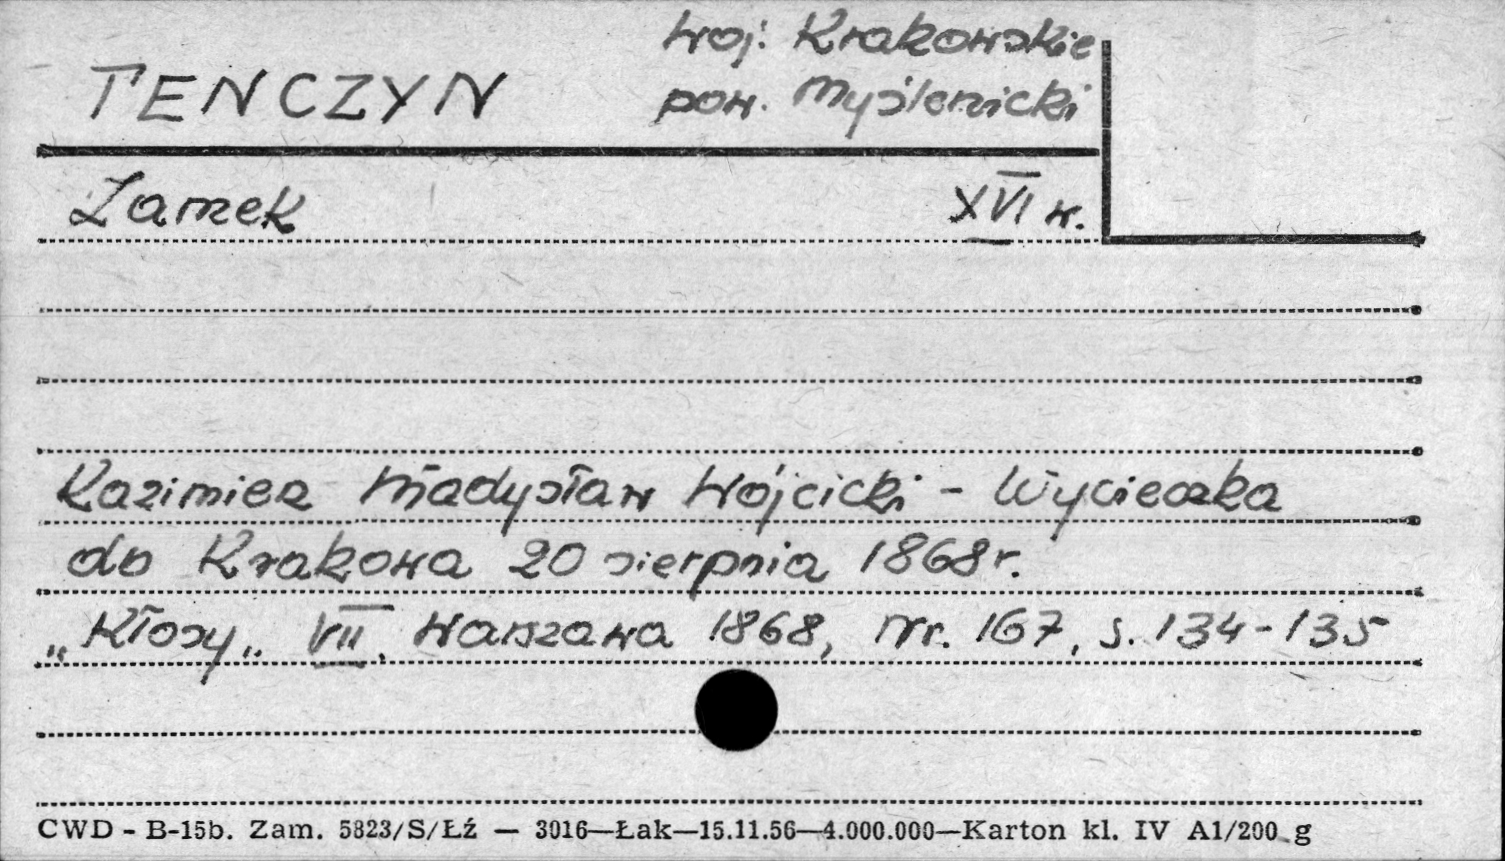 TENCZYN
woj. Krakowskie
pow. Myślenicki
Zamek XVI w.
Kazimierz Władysław Wójcicki - Wycieczka
do Krakowa 20 sierpnia 1868 r.
„Kłosy„ VII. Warszawa 1868, Nr. 167, s. 134-135
CWD - B-15b. Zam. 5823/S/Łź — 3016—Łak—15.11.56—4.000.000—Karton kl. IV A1/200 g